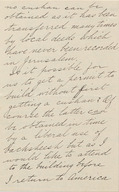 no cushan can be
obtained as it has been
transferred many times
by local deeds which
have never been recorded
in Jerusalem.
Is it possible for
me to get a permit to
build without first
getting a cushan? Of
course the latter can
be obtained in time
by a liberal use of
backsheesh but as I
would like to attend
to the building before
I return to America